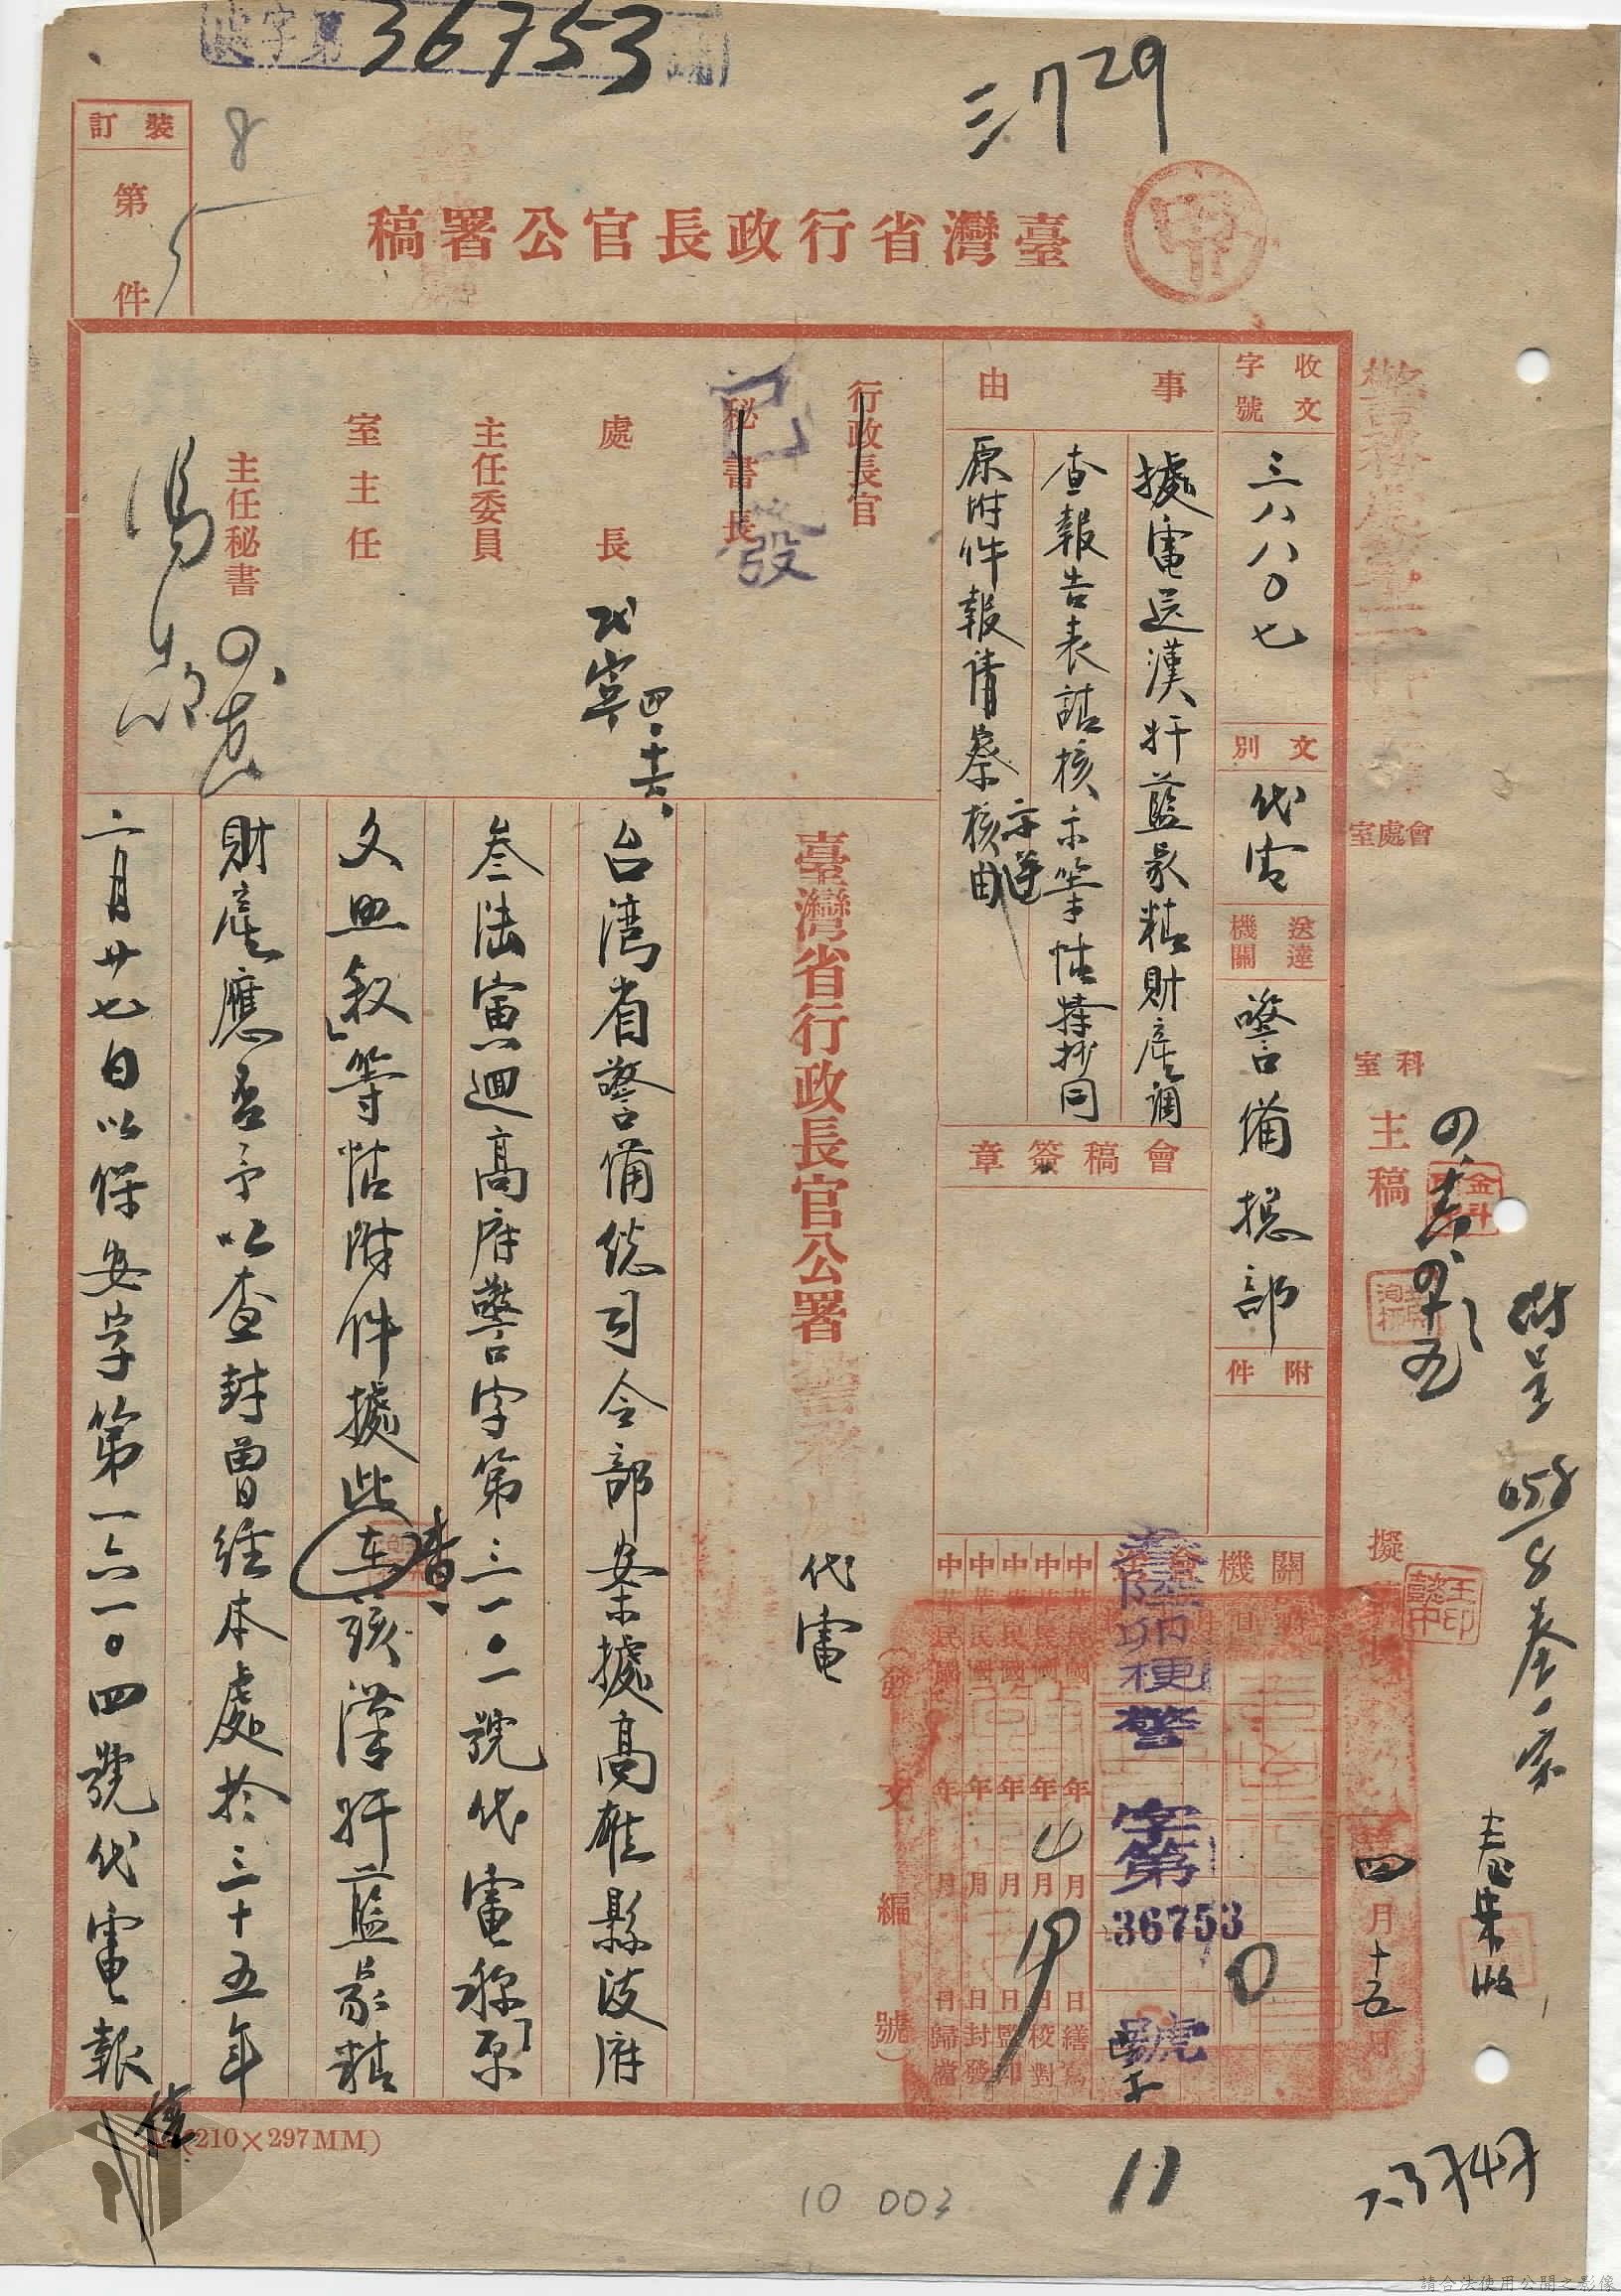 處字第36753號
三729
8
裝訂
第5件
臺灣省行政長官公署稿
甲
收文字號
三八八〇七
文別
代電
送達機關
警備總部
附件
事由
據電送漢奸藍家精財產調
查報告表請核示等情轉抄同
原附件報請察核示遵由
會稿簽章
行政長官
秘書長
已發
處長
四.十六
主任委員
室主任
主任秘書
會處室
科室
主稿
擬稿
四月十五日
附呈
臺灣省行政長官公署
代電
台灣省警備總司令部案據高雄縣政府
叁陸寅迴高府警字第三一〇一號代電稱「原
文照敘」等情附件據此查該漢奸藍家精
財產應否予以查封曾經本處於三十五年
二月廿七日以保安字第一六一〇四號代電報
關機會
叁陸卯梗警
字第
36753
號
中華民國 年 月 日繕寫
中華民國 年 月 日校對
中華民國 年 月 日監印
中華民國 年 月 日封發
中華民國 年 月 日歸檔
(發文編號)
王懿中印
(210×297MM)
10 003
11
請合法使用公開之影像